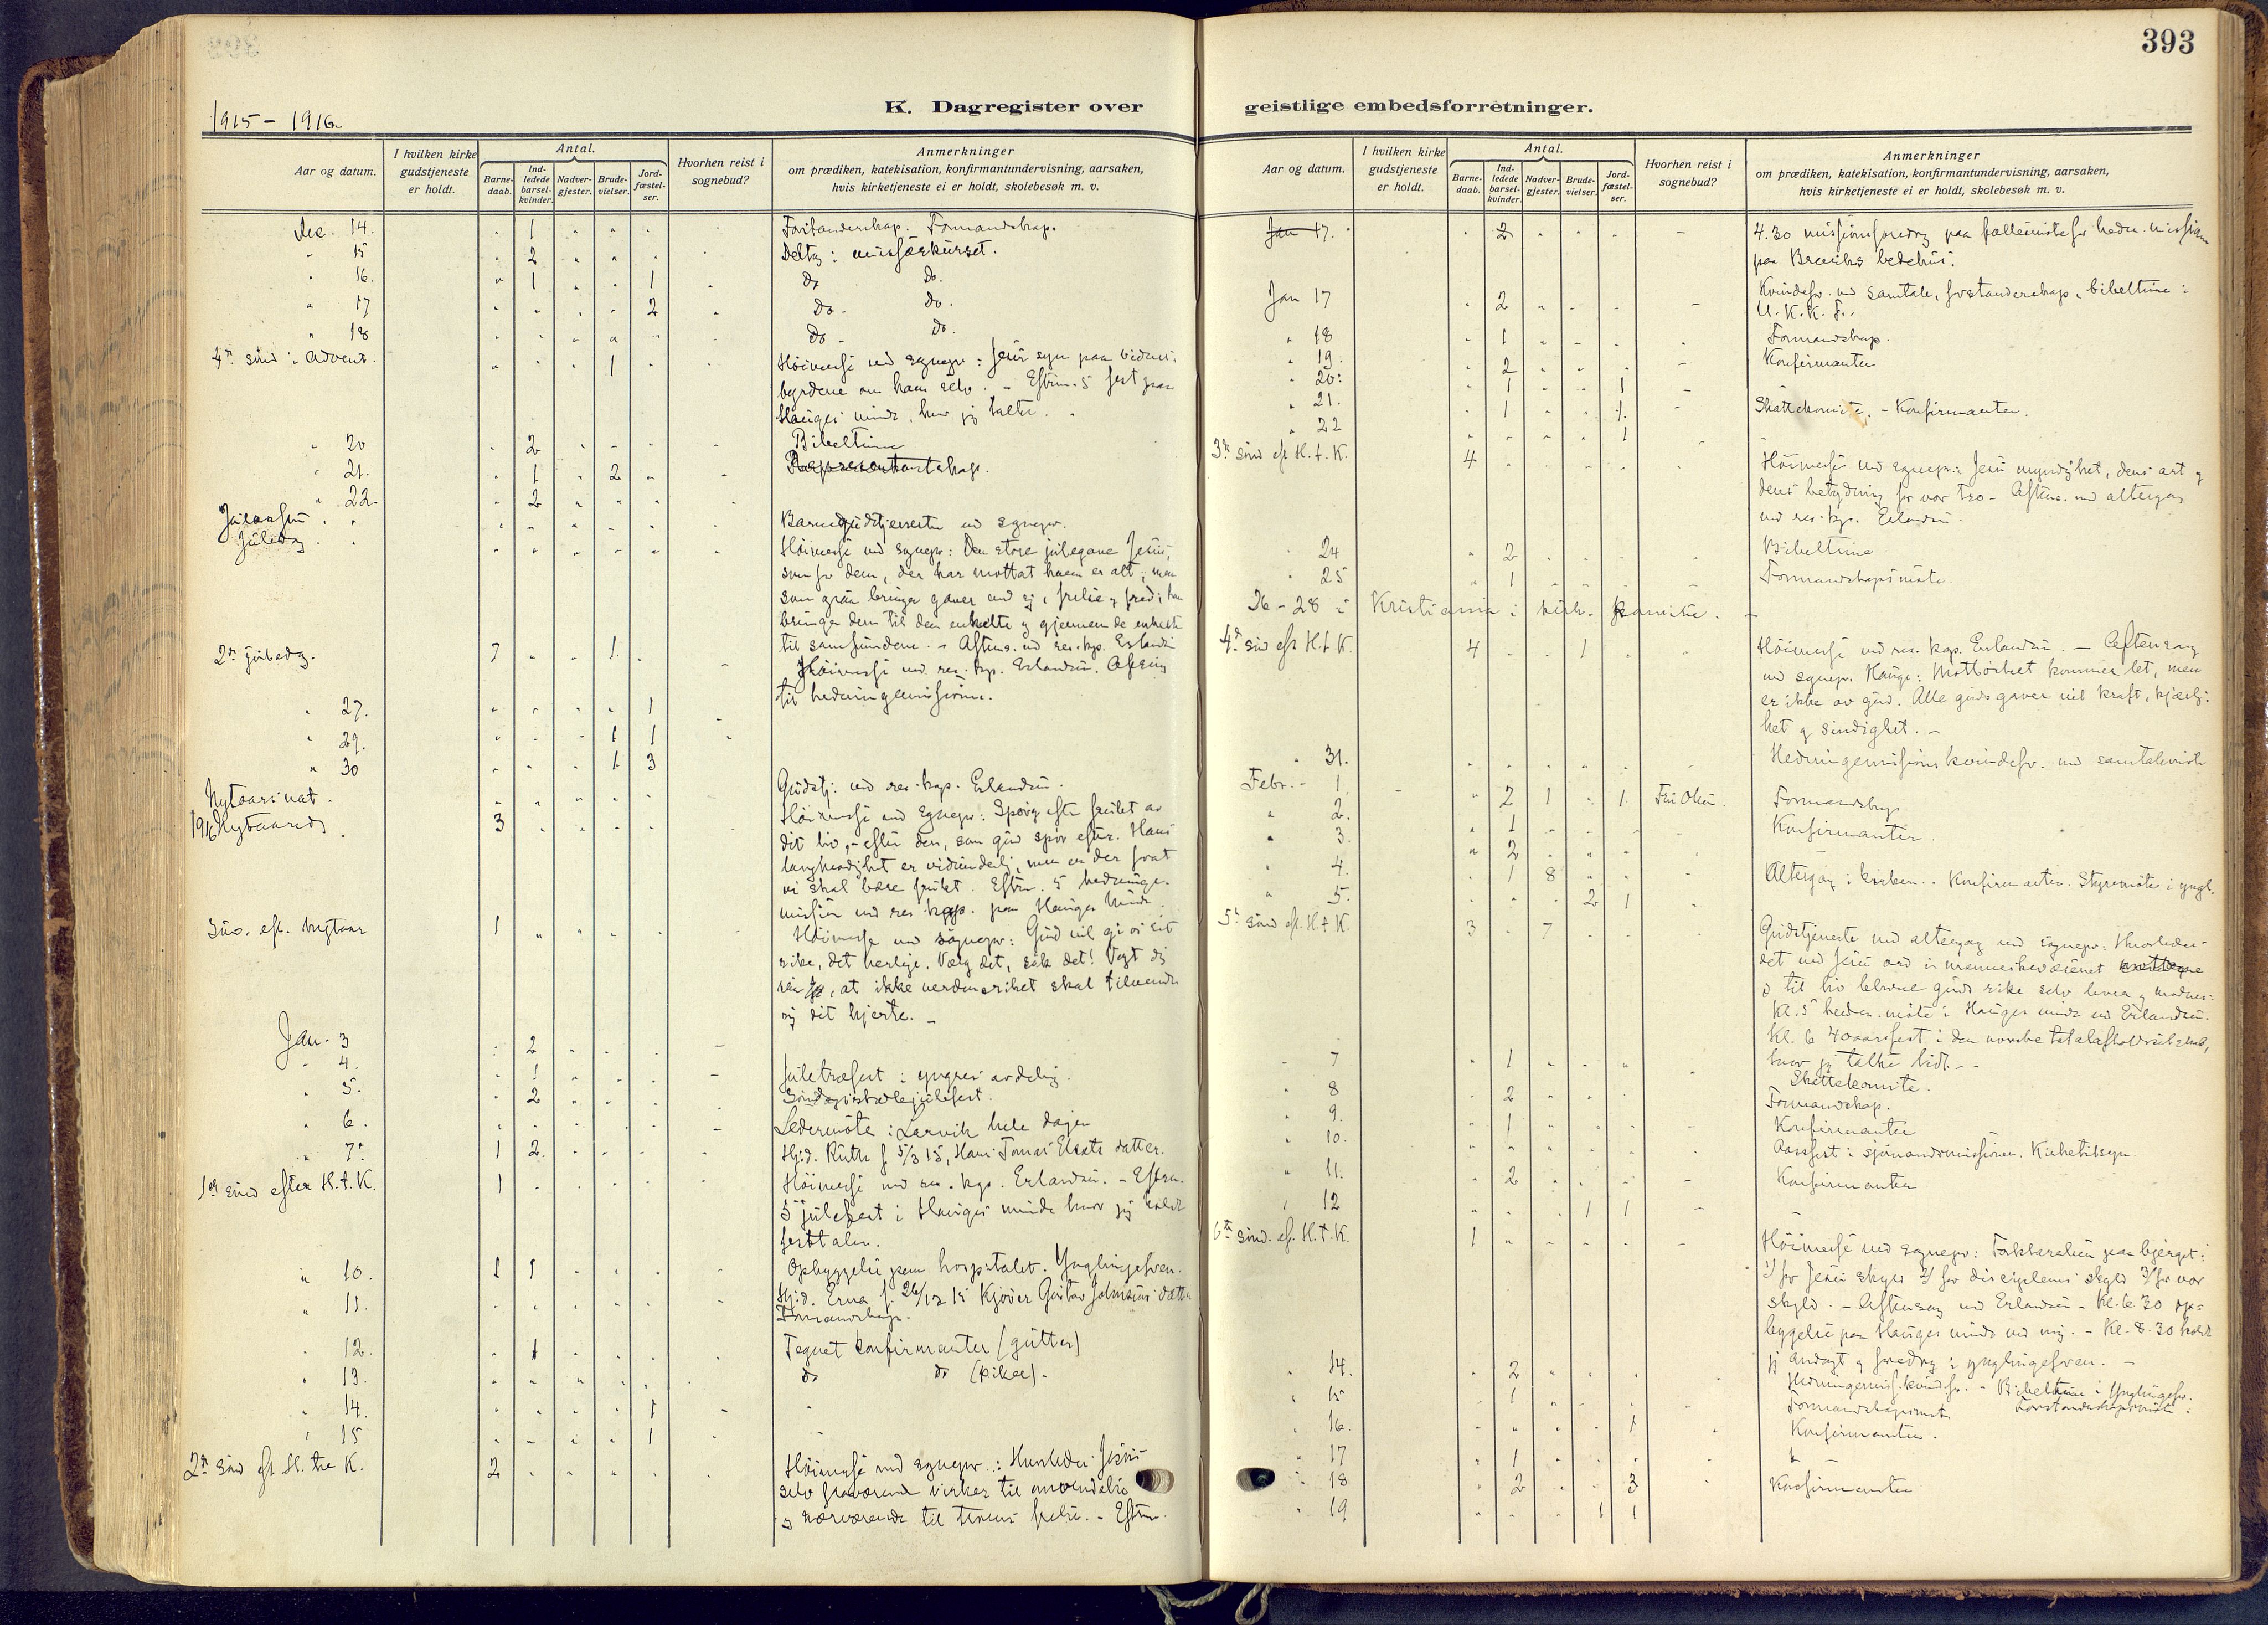 393
1915-1916
K. Dagregister over geistlige embedsforretninger.
Aar og datum.
I hvilken kirke gudstjeneste er holdt.
Antal.
Barne-daab.
Ind-ledede barsel-kvinder.
Nadver-gjester.
Brude-vielser.
Jord-fæstel-ser.
Hvorhen reist i sognebud?
Anmerkninger
om prædiken, katekisation, konfirmantundervisning, aarsaken,
hvis kirketjeneste ei er holdt, skolebesøk m. v.
Dec. 14. 1 Forstanderskap. Formandskap.
" 15 2 Deltog i
" 16. 1 1 do do.
" 17 2 do - do.
" 18 do - do.
4de sönd i advent. 1 Höimesse ved sognepr: Jesu syn paa vidnes-
byrdene om ham selv. - Eftm. 5 fest paa
Hauges minde, hvor jeg talte.
" 20 2 Bibeltime
" 21. 1 2 Representantskap.
" 22. 2
Juleaften Barnegudstjeneste ved sognepr.
Juledag Höimesse ved sognepr: Den store julegave Jesus,
som for dem, der har mottat ham er alt, men
som gaver end
bringer dem til den enkelte og gjennem de enkelte
til samfundene. - Aftens. ved res. kap. Erlandsen
2den juledag. 7 1 Höimesse ved res. kap. Erlandsen. Ofring
til hedningemissionen.
" 27. 1
" 29. 1 1
" 30 1 3
Nytaarsnat. Gudstj: ved res. kap. Erlandsen.
1916 Nytaarsdag 3 Höimesse ved sognepr: Spörg efter frukt av
dit liv, - efter den, som gud spör efter. Hans
langmodighet er vidunderlig, men er der forat
vi skal bære frukt. Eftm. 5 hedninge-
mission ved res. kap. paa Hauges minde.
Sönd. eft. nytaar 1 Höimesse ved sognepr: Gud vil gi os sit
rike, det herlige. Vælg det, søk det! Vogt dig
, at ikke verdensriket skal tilvende
sig dit hjerte. -
Jan. 3 2
" 4. 1 Juletræfest i yngres avdeling.
" 5. 2 Söndagsskolejulefest.
" 6. Ledermöte i Larvik hele dagen
" 7. 1 2. Hjd. Ruth f 5/3 15, Hans Tomas datter.
1ste sönd efter H.t.K. 1 Höimesse ved res. kap. Erlandsen. - Eftm.
5 julefest i Hauges minde hvor jeg holdt
festtalen.
" 10. 1 1 Opbyggelse paa hospitalet. Ynglingefören.
" 11. Hjd. Erna f. 26/12 15 Gustav Johnsens datter
Formandskap.
" 12. 1 Tegnet konfirmanter (gutter)
" 13. do do (piker).
" 14. 1
" 15 1
2den sönd eft. H. tre K. 2 Höimesse ved sognepr.: Hvorledes Jesus
selv fraværende virker til omvendelse
og nærværende til troens frelse. - Eftm.
Jan 17. 2 4.30 missionsforedrag paa fællesmöte for hedn. mission
paa Breviks bedehus.
Jan 17 2 Kvindefor. ved samtale, forstanderskap, bibeltime i
U. K. K. F.
" 18 1 Formandskap.
" 19. 2 Konfirmanter
" 20. 1 1
" 21. 1 1. Skattekomite. - Konfirmanter.
" 22 1
3de sönd eft H.t.K. 4 Höimesse ved sognepr: Jesu myndighet, dens art og
dens betydning for vor tro - Aftens. med altergang
ved res. kap. Erlandsen.
" 24 2 Bibeltime
" 25 1 Formandskapsmöte.
26-28 i Kristiania i kirk. komite.
4de sönd eft H.t.K. 4 1 Höimesse ved res. kap. Erlandsen. - Aftensang
ved sognepr. Hauge: Motlöshet kommer let, men
er ikke av gud. Alle guds gaver vil kraft, kjærlig-
het og sindighet. -
" 31. Hedningemissions kvindefor. ved samtalemöte
Febr. - 1. 2 1 1. Fru Olsen Formandskap
" 2. 1 Konfirmanter.
" 3. 2
" 4. 1 8 Altergang i kirken. - Konfirmanter. Styremöte i yngl.
" 5. 2 1
5te sönd eft. H t K. 3 7 Gudstjeneste med altergang ved sognepr: Hvorledes
det ved Jesu ord i menneskeværenet
og til liv blevne guds rike selv lever og modnes.
Kl. 5 hedn. möte i Hauges minde ved Erlandsen.
Kl. 6 40aarsfest i den norske totalafholdsselskab,
hvor jeg talte
" 7 1 Skattekomite.
" 8 2 Formandskap.
" 9. 1 Konfirmanter
" 10. Aarsfest i sjömandsmissionen. Kirketilsyn.
" 11. 2 Konfirmanter
" 12 1 1
6te sönd. eft. H.t.K. 1 Höimesse ved sognepr: Forklarelsen paa bjerget:
1) for Jesu skyld 2) for disciplenes skyld 3) for vor
skyld. - Aftensang ved Erlandsen - Kl. 6.30 op-
byggelse paa Hauges minde ved mig. - Kl. 8.30 holdt
jeg andagt og foredrag i ynglingefören. -
" 14. 2 Hedningemiss. kvindefor. - Bibeltime i Ynglingefor.
" 15 1 Formandskapsmöte Forstanderskapsmöte.
" 16. 1 Konfirmanter.
" 17 1
" 18 2 3 Konfirmanter
" 19 1 1